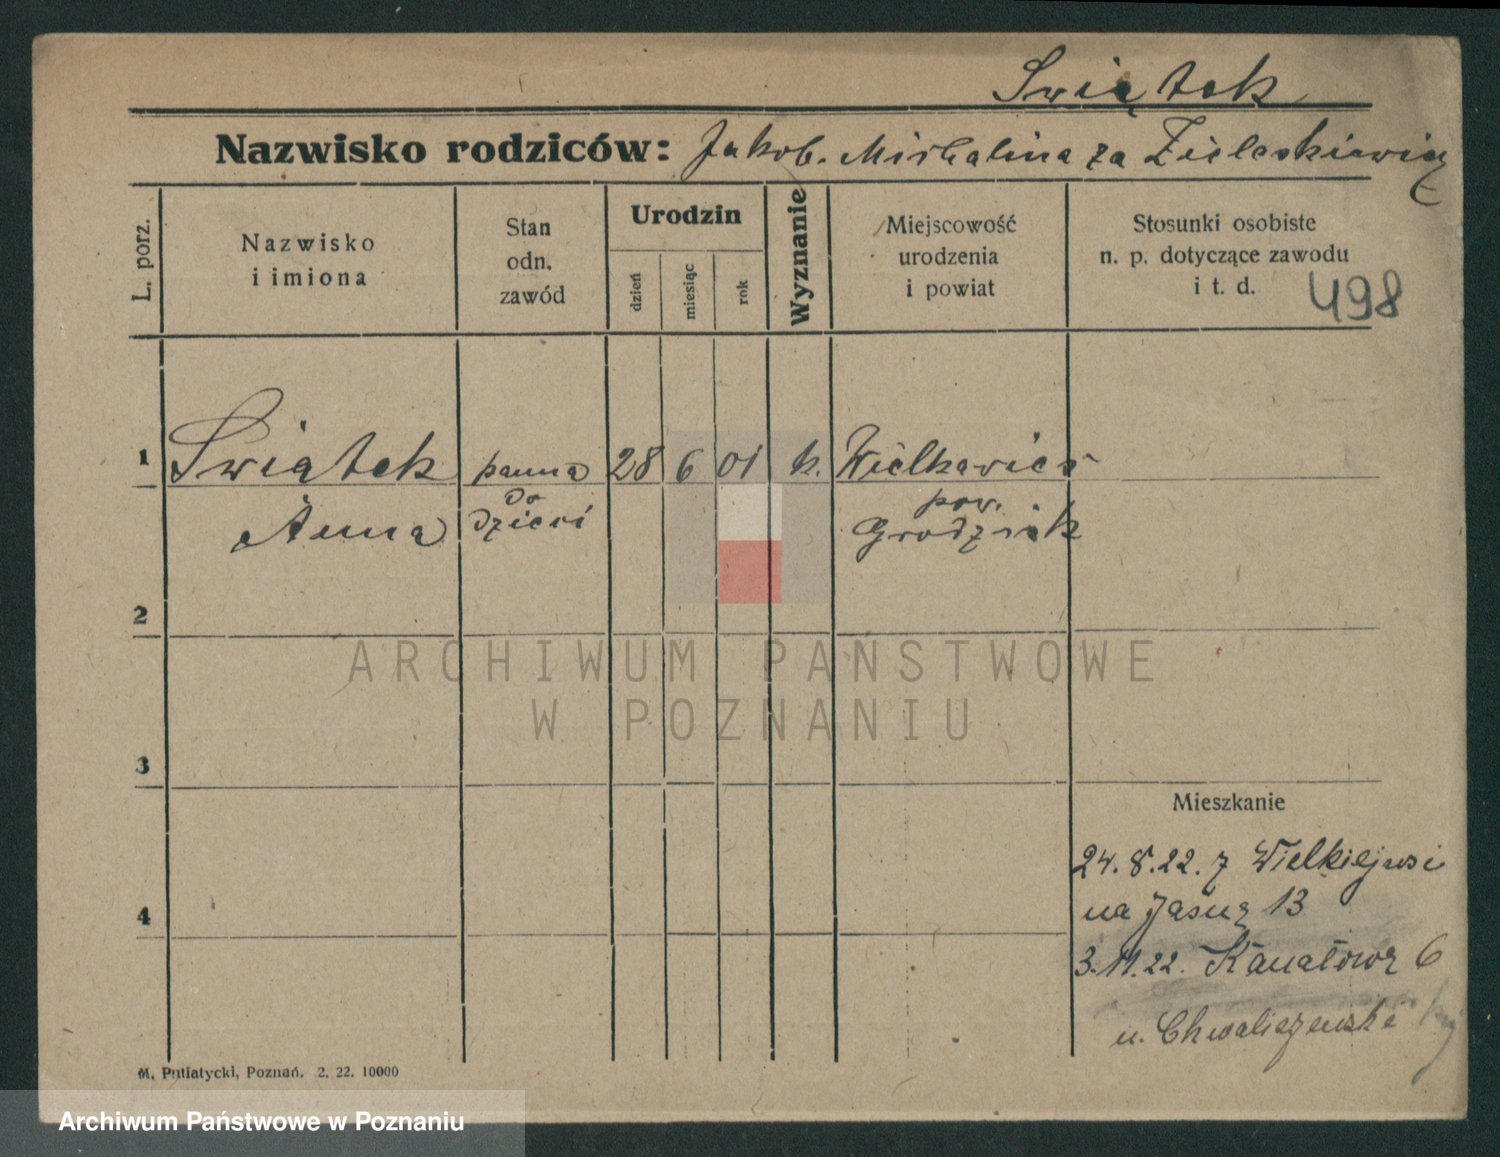 Swiątek
Nazwisko rodziców: Jakob. Michalina za Zielaskiewicz
L. porz.
Nazwisko
i imiona
Stan
odn.
zawód
Urodzin
dzień
miesiąc
rok
Wyznanie
Miejscowość
urodzenia
i powiat
Stosunki osobiste
n. p. dotyczące zawodu
i t. d.
498
1 Swiątek panna 28 6 01 k. Wielkawieś
Anna do dzieci pow. Grodzisk
2
3
4
Mieszkanie
24. 8. 22. z Wielkiejwsi
na Jasną 13
3. 11. 22. Kanałową 6
u. Chwaliszewski
M. Putiatycki, Poznań. 2. 22. 10000
ARCHIWUM PAŃSTWOWE
W POZNANIU
Archiwum Państwowe w Poznaniu